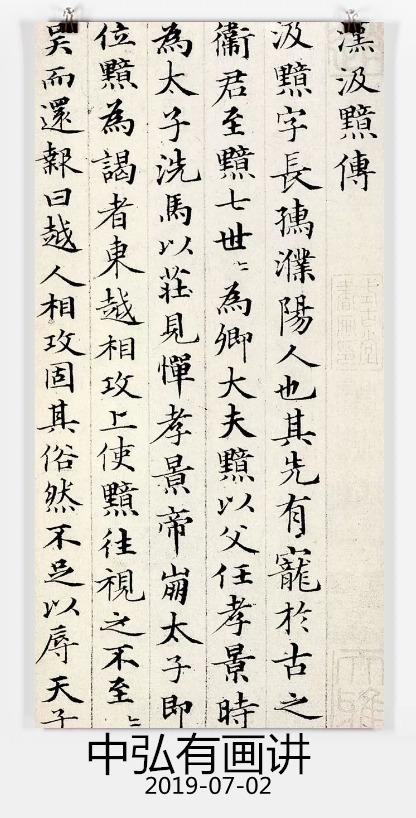 漢汲黯傳
汲黯字長孺濮陽人也其先有寵於古之
衛君至黯七世〻為卿大夫黯以父任孝景時
為太子洗馬以莊見憚孝景帝崩太子即
位黯為謁者東越相攻上使黯往視之不至〻
吳而還報曰越人相攻固其俗然不足以辱天子
中弘有画讲
2019-07-02